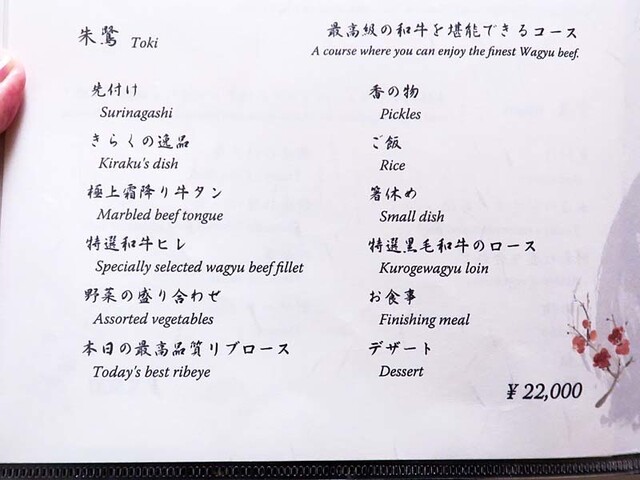 朱鷺 Toki
最高級の和牛を堪能できるコース
A course where you can enjoy the finest Wagyu beef.
先付け
Surinagashi
きらくの逸品
Kiraku's dish
極上霜降り牛タン
Marbled beef tongue
特選和牛ヒレ
Specially selected wagyu beef fillet
野菜の盛り合わせ
Assorted vegetables
本日の最高品質リブロース
Today's best ribeye
香の物
Pickles
ご飯
Rice
箸休め
Small dish
特選黒毛和牛のロース
Kurogewagyu loin
お食事
Finishing meal
デザート
Dessert
¥ 22,000